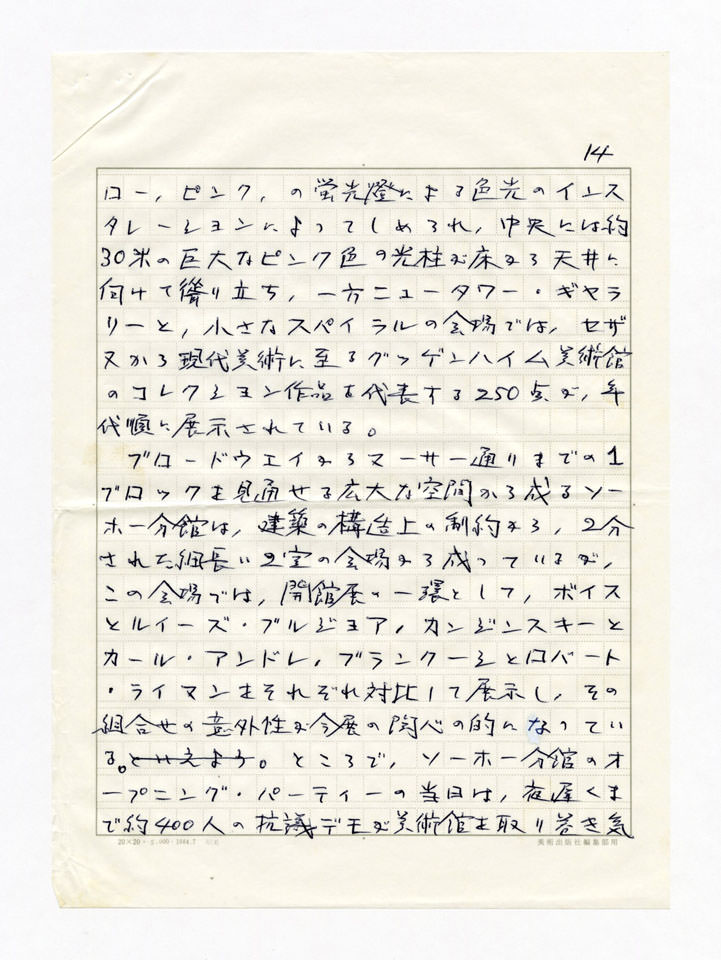 14
ロー,ピンク,の螢光燈による色光のインス
タレーションによってしめられ,中央には約
30米の巨大なピンク色の光柱が床から天井に
向けて聳り立ち,一方ニュータワー・ギャラ
リーと,小さなスパイラルの会場では,セザ
ヌから現代美術に至るグッゲンハイム美術館
のコレクション作品を代表する250点が,年
代順に展示されている。
ブロードウエイからマーサー通りまでの1
ブロックを見通せる広大な空間から成るソー
ホー分館は,建築の構造上の制約から,2分
された細長い2室の会場から成っているが,
この会場では,開館展の一環として,ボイス
とルイーズ・ブルジョア,カンジンスキーと
カール・アンドレ,ブランクーシとロバート
・ライマンをそれぞれ対比して展示し,その
組合せの意外性が今展の関心の的になってい
る。といえよう。ところで,ソーホー分館のオ
ープニング・パーティーの当日は,夜遅くま
で約400人の抗議デモが美術館を取り巻き気
20×20
1984.7
美術出版社編集部用